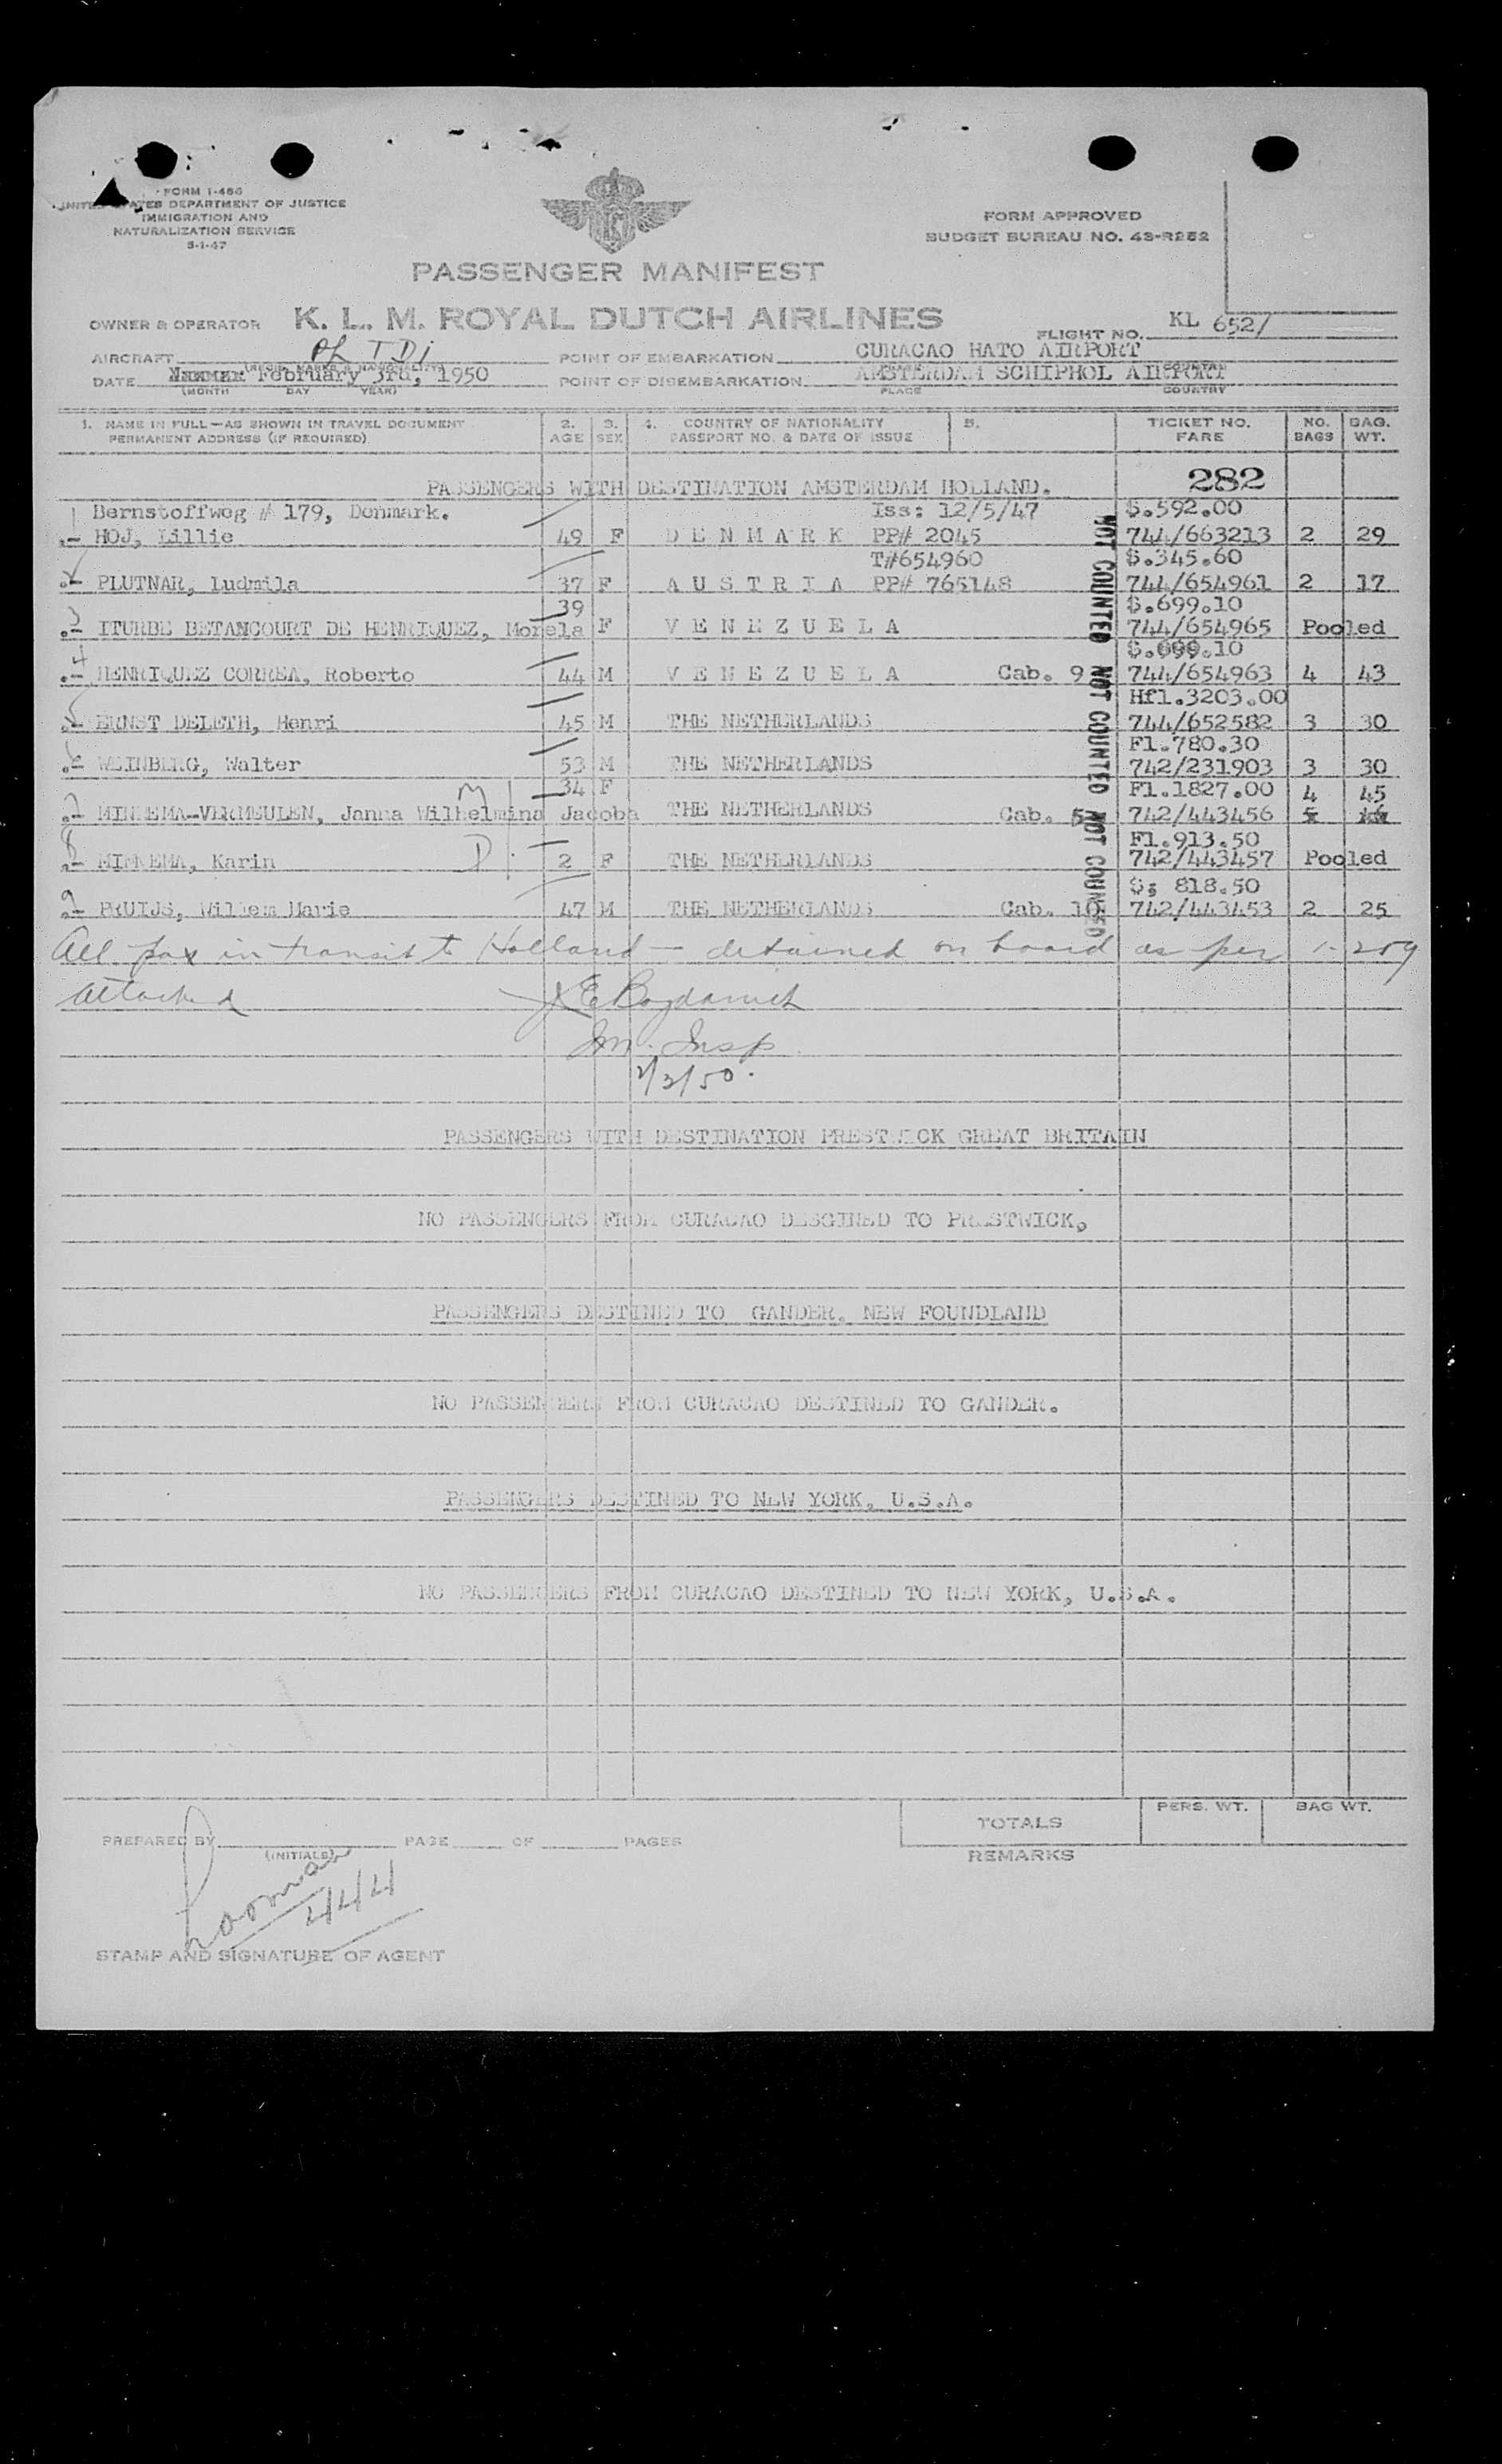 FORM I-466
UNITED STATES DEPARTMENT OF JUSTICE
IMMIGRATION AND
NATURALIZATION SERVICE
5-1-47
FORM APPROVED
BUDGET BUREAU NO. 43-R252
PASSENGER MANIFEST
OWNER & OPERATOR K. L. M. ROYAL DUTCH AIRLINES
FLIGHT NO. KL 652/
AIRCRAFT PH TDI POINT OF EMBARKATION CURACAO HATO AIRPORT
DATE February 3rd, 1950 POINT OF DISEMBARKATION AMSTERDAM SCHIPHOL AIRPORT
(MONTH DAY YEAR) PLACE COUNTRY
1. NAME IN FULL—AS SHOWN IN TRAVEL DOCUMENT 2. 3. 4. COUNTRY OF NATIONALITY 5. TICKET NO. NO. BAG.
PERMANENT ADDRESS (IF REQUIRED) AGE SEX PASSPORT NO. & DATE OF ISSUE FARE BAGS WT.
PASSENGERS WITH DESTINATION AMSTERDAM HOLLAND. 282
Bernstoffweg # 179, Denmark. Iss: 12/5/47 $.592.00
1 HOJ, Lillie 49 F D E N M A R K PP# 2045 744/663213 2 29
T#654960 $.345.60
PLUTNAR, Ludmila 37 F A U S T R I A PP# 765148 744/654961 2 17
39 $.699.10
3 ITURBE BETANCOURT DE HENRIQUEZ, Morela F V E N E Z U E L A 744/654965 Pooled
$.699.10
4 HENRIQUEZ CORREA, Roberto 44 M V E N E Z U E L A Cab. 9 744/654963 4 43
Hfl.3203.00
5 ERNST DELETH, Henri 45 M THE NETHERLANDS 744/652582 3 30
Fl.780.30
6 WEINBERG, Walter 53 M THE NETHERLANDS 742/231903 3 30
M 34 F Fl.1827.00 4 45
7 MINNEMA-VERMEULEN, Janna Wilhelmina Jacoba THE NETHERLANDS Cab. 5 742/443456
Fl.913.50
8 MINNEMA, Karin D 2 F THE NETHERLANDS 742/443457 Pooled
$; 818.50
9 PRUIJS, Willem Marie 47 M THE NETHERLANDS Cab. 10 742/443453 2 25
NOT COUNTED NOT COUNTED NOT COUNTED
All pax in transit to Holland — detained on board as per I-259
attached J E Bogdanich
Im. Insp.
2/3/50.
PASSENGERS WITH DESTINATION PRESTWICK GREAT BRITAIN
NO PASSENGERS FROM CURACAO DESGINED TO PRESTWICK,
PASSENGERS DESTINED TO GANDER, NEW FOUNDLAND
NO PASSENGERS FROM CURACAO DESTINED TO GANDER.
PASSENGERS DESTINED TO NEW YORK, U.S.A.
NO PASSENGERS FROM CURACAO DESTINED TO NEW YORK, U.S.A.
PERS. WT. BAG WT.
TOTALS
PREPARED BY PAGE OF PAGES
(INITIALS)
REMARKS
444
STAMP AND SIGNATURE OF AGENT